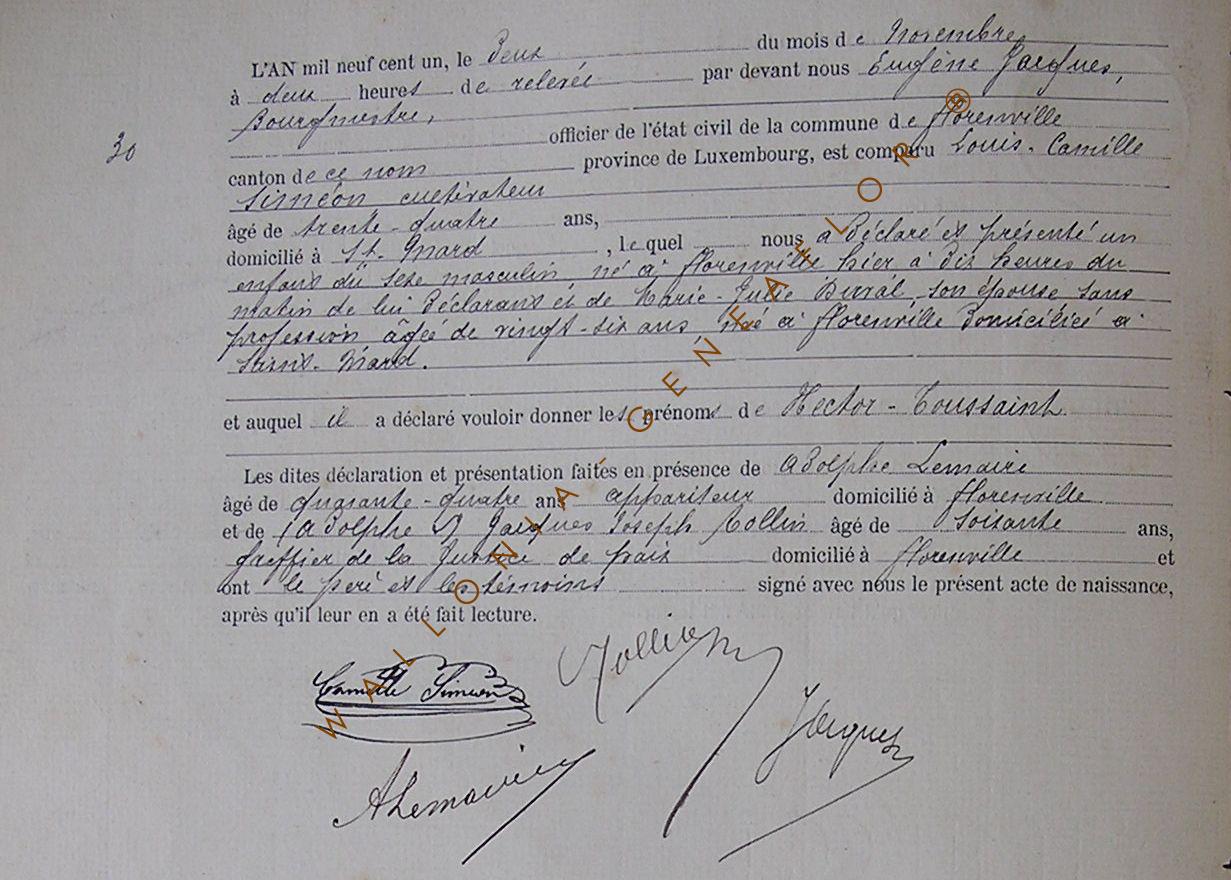 L'AN mil neuf cent un, le deux du mois de novembre
à deux heures de relevée par devant nous Eugène Jacques,
Bourgmestre,
30
officier de l'état civil de la commune de florenville
canton de ce nom province de Luxembourg, est comparu Louis-Camille
Siméon cultivateur
âgé de trente-quatre ans,
domicilié à St. Mard, lequel nous a déclaré et présenté un
enfant du sexe masculin, né à florenville hier à dix heures du
matin de lui déclarant et de Marie-Julie son épouse sans
profession âgée de vingt-six ans, née à florenville domiciliée à
Saint-Mard.
et auquel il a déclaré vouloir donner les prénoms de Hector-Toussaint
Les dites déclaration et présentation faites en présence de adolphe Lemaire
âgé de quarante-quatre ans appariteur domicilié à florenville
et de (adolphe) Jacques Joseph Collin âgé de soixante ans,
greffier de la Justice de paix domicilié à florenville et
ont le père et les témoins signé avec nous le présent acte de naissance,
après qu'il leur en a été fait lecture.
Camille Siméon
Collin
Jacques
ALemaire
WALLONIA-GENEAFLOR®